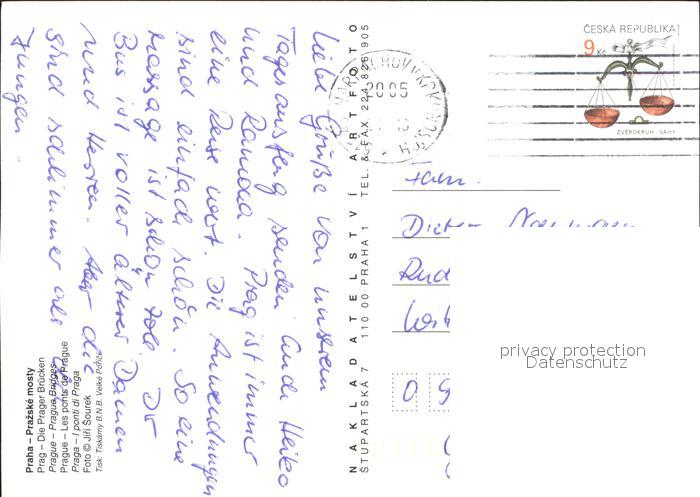 Liebe Grüße von unserem
Tagesausflug senden Euch Heiko
und Ramona. Prag ist immer
eine Reise wert. Die Anwendungen
sind einfach schön. So eine
Massage ist schon toll. Der
Bus ist voller älterer Damen
und Herren. Aber die
sind schlimmer als
Jungen.
Praha – Pražské mosty
Prag – Die Prager Brücken
Prague – Prague Bridges
Prague – Les ponts de Prague
Praga – I ponti di Praga
Foto © Jiří Šourek
Tisk: Tiskárny B.N.B. Velké Poříčí
NAKLADATELSTVÍ ARTFOTO
ŠTUPARTSKÁ 7 110 00 PRAHA 1 TEL. & FAX 224 826 905
ČESKÁ REPUBLIKA
9 Kč
ZVĚROKRUH VÁHY
2005
Fam.
Dieter
Rud
0 9
privacy protection
Datenschutz